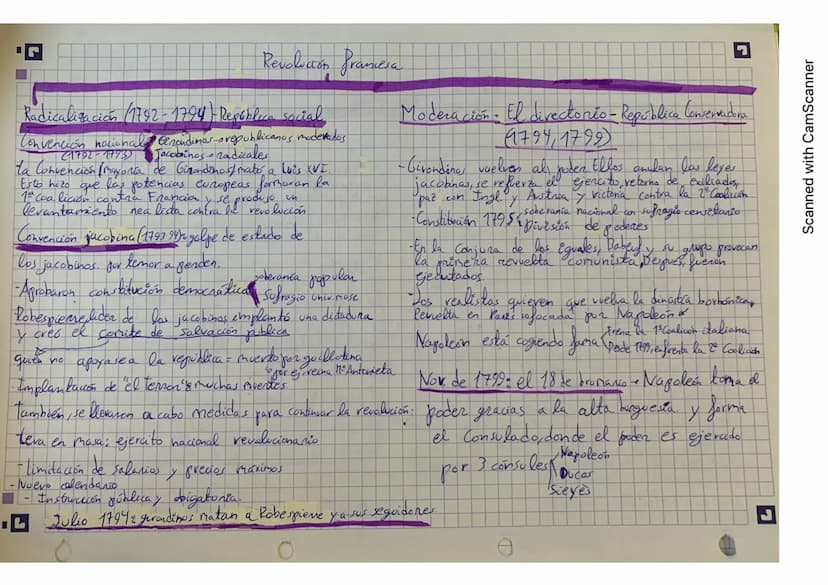 Revolución francesa
Radicalización (1792-1794) República social
Convención nacional Girondinos→republicanos moderados
(1792-1793) Jacobinos→radicales
la Convención (mayoría de Girondinos) mató a Luis XVI.
Esto hizo que las potencias europeas formaran la
1ª coalición contra Francia y se produjo un
levantamiento realista contra la revolución
Convención jacobina (1793-94): golpe de estado de
los jacobinos por temor a perder.
-Aprobaron constitución democrática soberanía popular
Sufragio universal
Robespierre, líder de los jacobinos implantó una dictadura
y creó el comité de salvación pública
quien no apoyase a la república = muerto por guillotina
por ej: reina Mª Antonieta
-Implantación de "el terror": muchas muertes
también, se llevaron a cabo medidas para continuar la revolución:
-leva en masa: ejército nacional revolucionario
-limitación de salarios y precios máximos
-Nuevo calendario
- Instrucción pública y obligatoria.
Julio 1794: girondinos matan a Robespierre y a sus seguidores
Moderación - El directorio - República Conservadora
(1794, 1799)
-Girondinos vuelven al poder. Ellos anulan las leyes
jacobinas, se refuerza el ejército, retorno de exiliados,
paz con Ingl y Austria y victoria contra la 1ª Coalición
-Constitución 1795 soberanía nacional con sufragio censitario
División de poderes
-En la Conjura de los Iguales, Babeuf y su grupo provocan
la primera revuelta "comunista". Después, fueron
ejecutados.
-Los realistas quieren que vuelva la dinastía borbónica,
Revuelta en París sofocada por Napoleón
Napoleón está cogiendo fama Frena la 1ª Coalición italiana
Desde 1799, enfrenta la 2ª Coalición
Nov de 1799: el 18 de brumario → Napoleón toma el
poder gracias a la alta burguesía y forma
el Consulado, donde el poder es ejercido
por 3 cónsules Napoleón
Ducos
Sieyès
Scanned with CamScanner